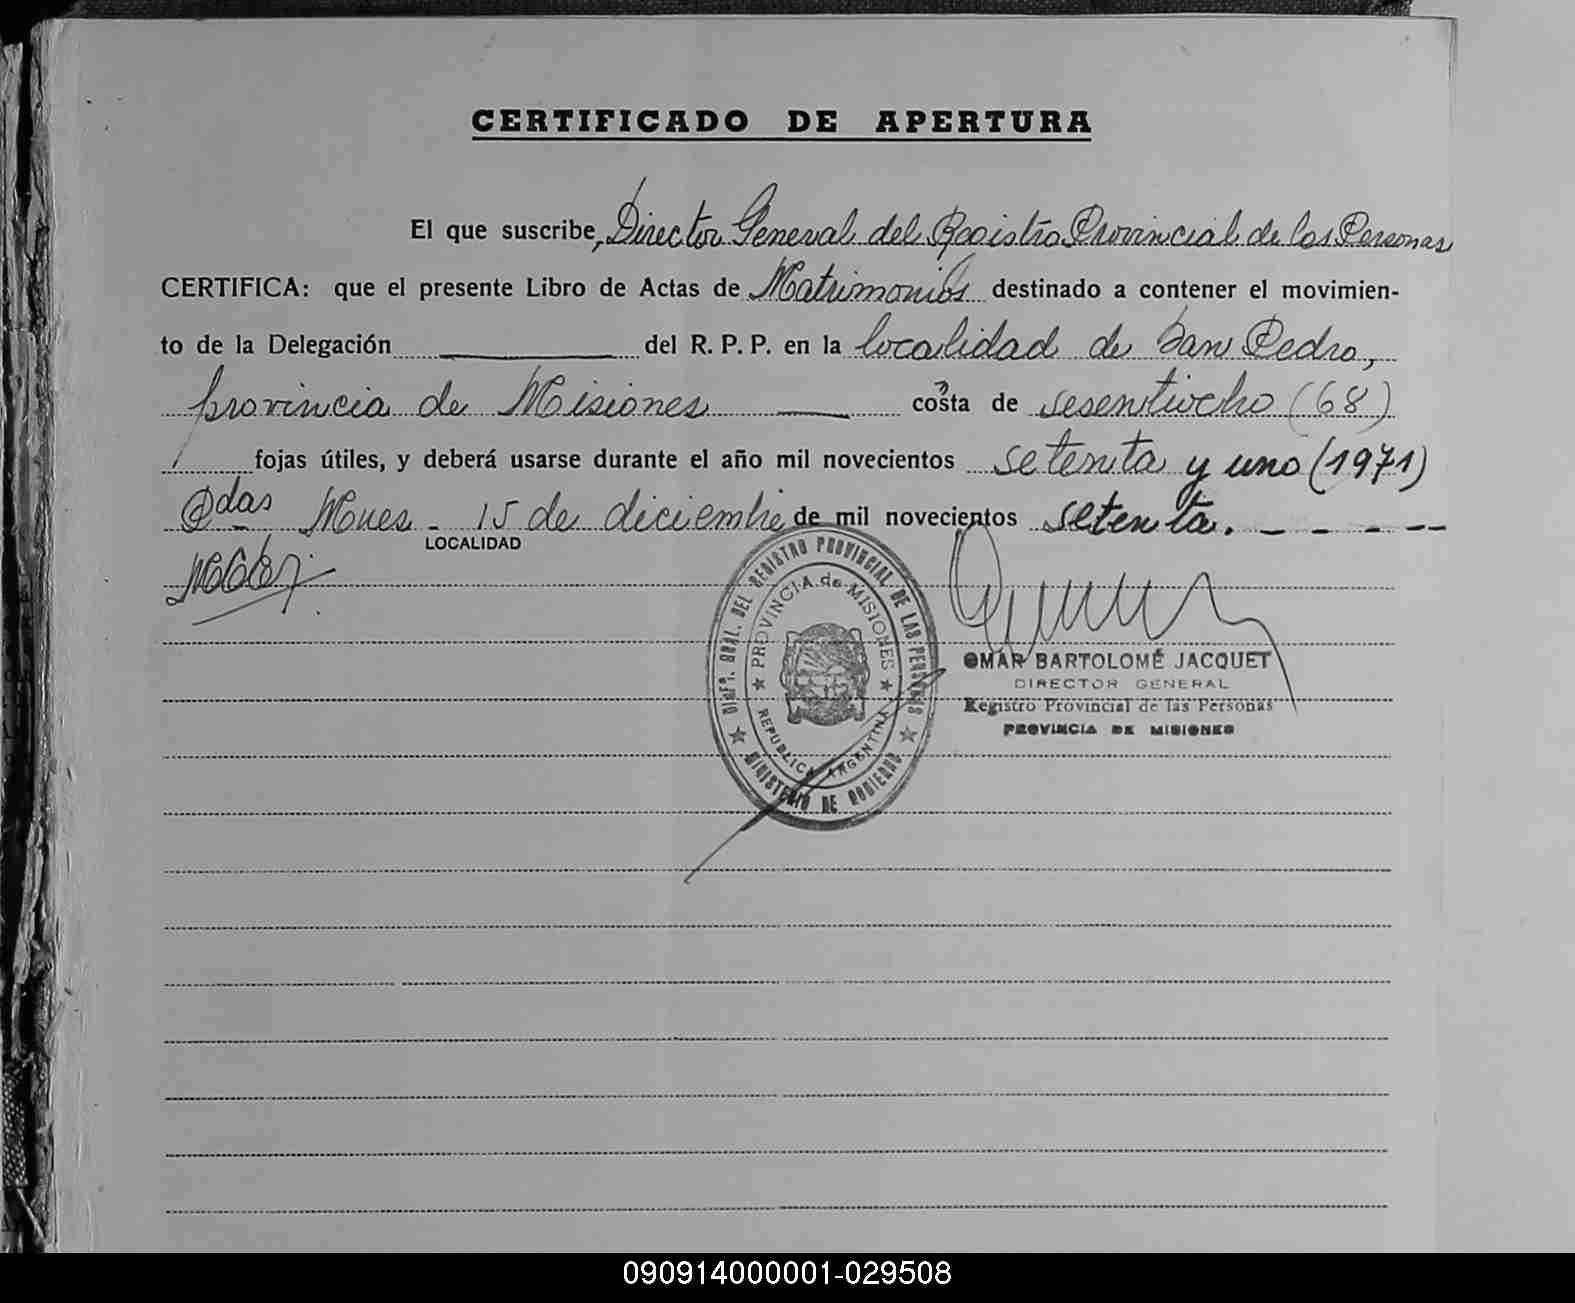 CERTIFICADO DE APERTURA
El que suscribe, Director General del Registro Provincial de las Personas
CERTIFICA: que el presente Libro de Actas de Matrimonios destinado a contener el movimien-
to de la Delegación del R. P. P. en la localidad de San Pedro,
provincia de Misiones costa de sesentiocho (68)
fojas útiles, y deberá usarse durante el año mil novecientos setenta y uno (1971)
Pdas Mnes - 15 de diciembre de mil novecientos setenta.
LOCALIDAD
DIREC. GRAL. DEL REGISTRO PROVINCIAL DE LAS PERSONAS
PROVINCIA de MISIONES
REPUBLICA ARGENTINA
MINISTERIO DE GOBIERNO
OMAR BARTOLOMÉ JACQUET
DIRECTOR GENERAL
Registro Provincial de las Personas
PROVINCIA DE MISIONES
090914000001-029508